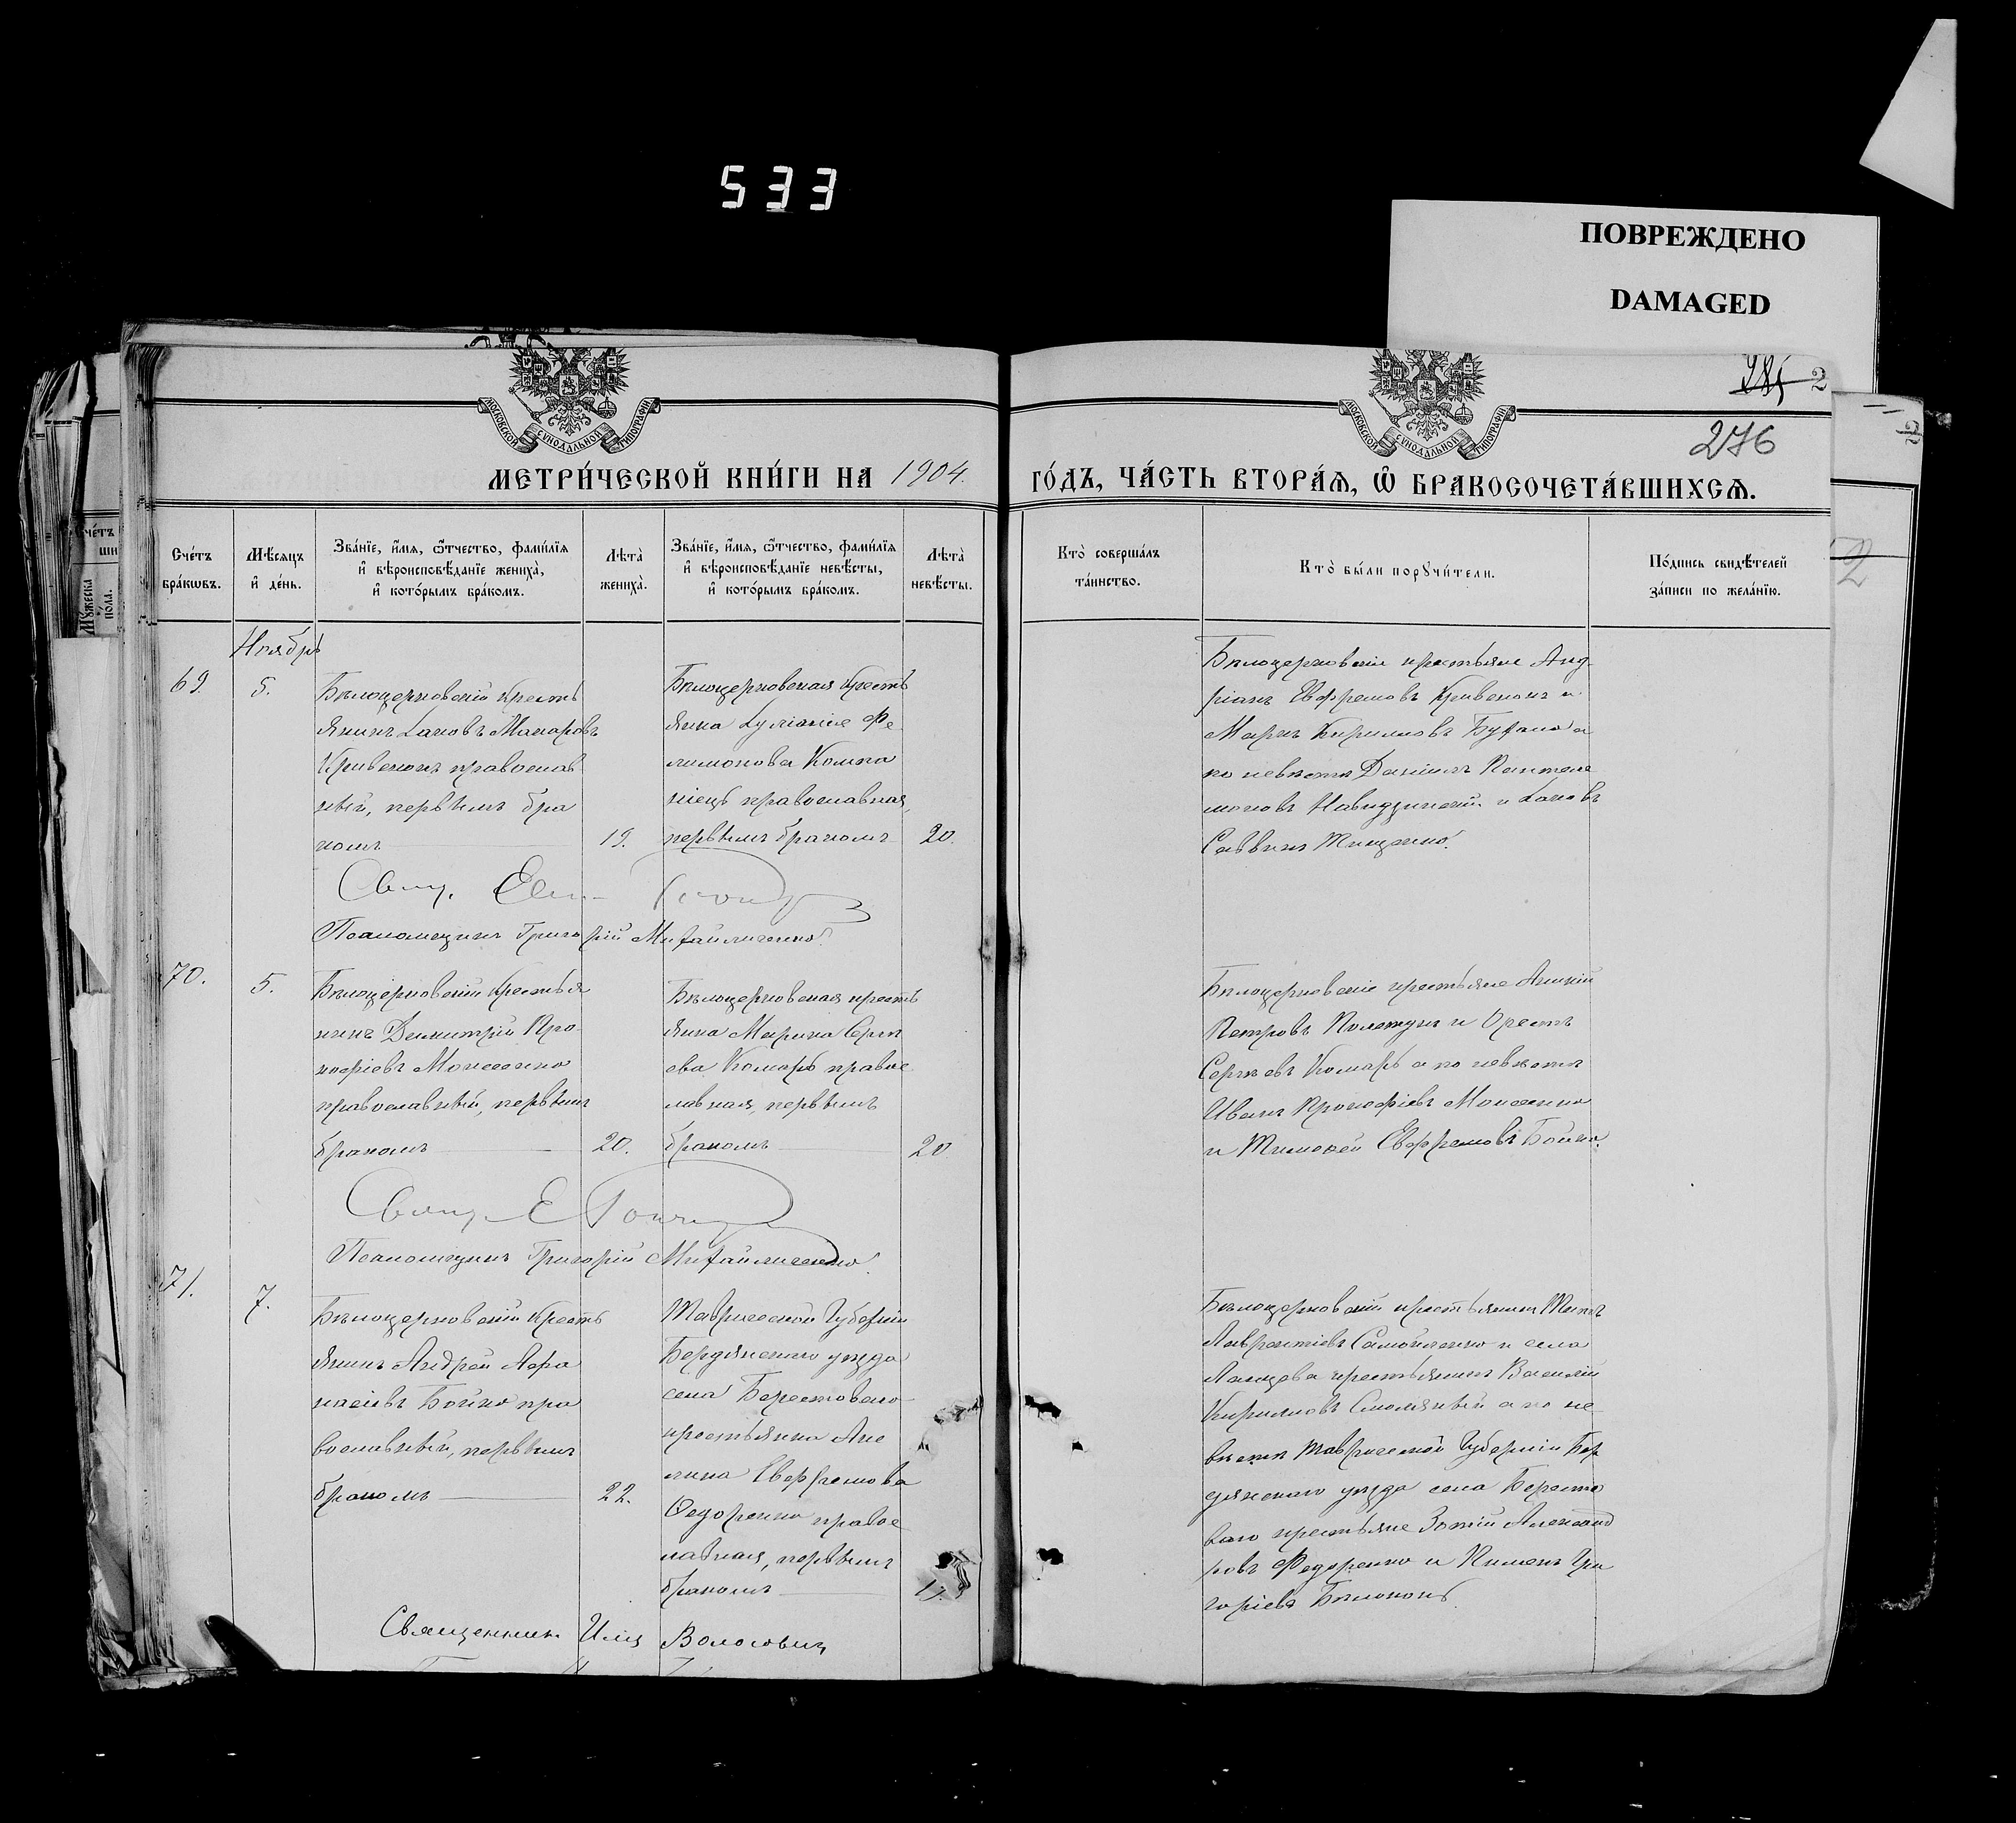 533
ПОВРЕЖДЕНО
DAMAGED
МОСКОВСКОЙ СУНОДАЛЬНОЙ ТИПОГРАФІИ
МОСКОВСКОЙ СУНОДАЛЬНОЙ ТИПОГРАФІИ
2
276
МЕТРИ́ЧЕСКОЙ КНИ́ГИ НА 1904.
ГО́ДЪ, ЧА́СТЬ ВТОРА́Ѧ, Ѽ БРАКОСОЧЕТА́ВШИХСѦ.
Сче́тъ
бра́кѡвъ.
Мѣ́сяцъ
и҆ де́нь.
Зва́нїе, и҆́мѧ, ѻ҆́тчество, фами́лїѧ
и҆ вѣроисповѣ́данїе жениха̀,
и҆ кото́рымъ бра́комъ.
Лѣта̀
жениха̀.
Зва́нїе, и҆́мѧ, ѻ҆́тчество, фами́лїѧ
и҆ вѣроисповѣ́данїе невѣ́сты,
и҆ кото́рымъ бра́комъ.
Лѣта̀
невѣ́сты.
Кто̀ соверша́лъ
та́инство.
Кто̀ бы́ли порꙋчи́тели.
По́дпись свидѣ́телей
за́писи по жела́нїю.
Ноябрь
69.
5.
Бѣлоцерковскій кресть
янинъ Іаковъ Макаровъ
Кривенокъ православ
ный, первымъ бра
комъ
19.
Бѣлоцерковская кресть
янка Іуліанія Фи
лимонова Компа
ніецъ православная,
первымъ бракомъ
20.
Бѣлоцерковскіе крестьяне Анд
ріанъ Евфремовъ Кривенокъ и
Маркъ Кирилловъ а
по невѣстѣ Даніилъ Пантеле
моновъ и Іаковъ
Саввинъ Тищенко.
Свящ.
Псаломщикъ Григорій Михайличенко.
70.
5.
Бѣлоцерковскій крестья
нинъ Димитрій Про
кофіевъ Моисеенко
православный, первымъ
бракомъ
20.
Бѣлоцерковская кресть
янка Марина Сергѣ
ева Комаръ правос
лавная, первымъ
бракомъ
20
Бѣлоцерковскіе крестьяне
Петровъ и Орестъ
Сергѣевъ Комарь а по невѣстѣ
Иванъ Прокофіевъ Моисеенко
и Тимофей Евфремовъ Бойко.
Свящ. Е
Псаломщикъ Григорій Михайличенко.
71.
7.
Бѣлоцерковскій кресть
янинъ Андрей Афа
насіевъ Бойко пра
вославный, первымъ
бракомъ
22.
Таврической Губерніи
Бердянскаго уѣзда
села Берестоваго
крестьянка Аке
лина Евфремова
Ѳедоренко правос
лавная, первымъ
бракомъ
Бѣлоцерковскій крестьянинъ
Лаврентіевъ Самойленко и села
крестьянинъ Василій
Кирилловъ а по не
вѣстѣ Таврической Губерніи Бер
дянскаго уѣзда села Бересто
ваго крестьяне Зотій Александ
ровъ Федоренко и Пименъ Гри
горіевъ Бѣлоконь.
Священникъ Илія Волосовичъ